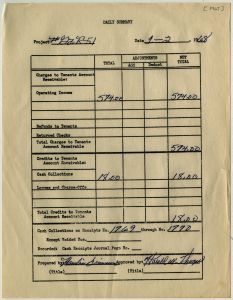 [MWT]
DAILY SUMMARY
Project Date 9-2 1968
TOTAL ADJUSTMENTS NET TOTAL
Add Deduct
Charges to Tenants Account Receivable:
Operating Income 574.00 574.00
Refunds to Tenants
Returned Checks
Total Charges to Tenants Account Receivable 574.00
Credits to Tenants Account Receivable:
Cash Collections 18.00 18.00
Losses and Charge-Offs
Total Credits to Tenants Account Receivable 18.00
Cash Collections on Receipts No. 1269 through No. 1270
Except Voided Nos.
Recorded: Cash Receipts Journal Page No.
Prepared by Approved by
(Title) (Title)